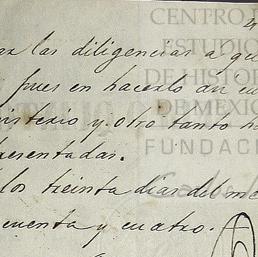 las diligencias a
pues en hacerlo
isterio y otro tanto
resentadas.
los treinta dias del
cuenta y cuatro.
CENTRO
ESTUDIO
DE HISTOR
DE MEXIC
FUNDACI